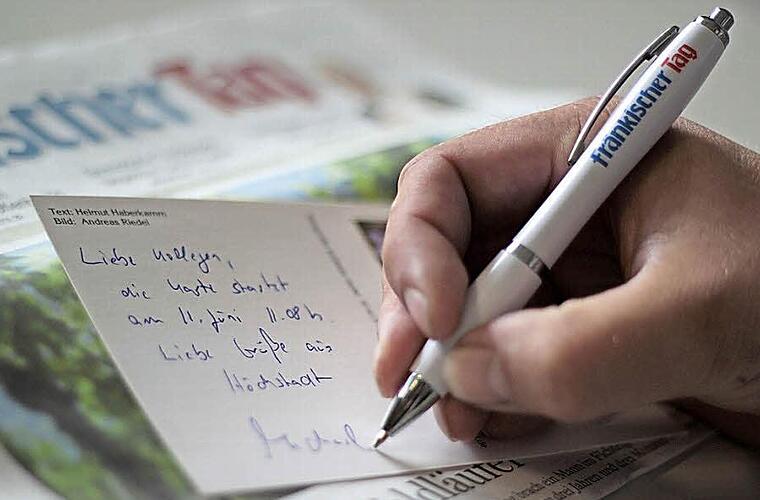 scher Tag
fränkischer Tag
Text: Helmut Haberkamm
Bild: Andreas Riedel
Liebe Kollegen,
die Karte startet
am 11. Juni 11.08 h.
Liebe Grüße aus
Höchstadt
Michael
dläufer